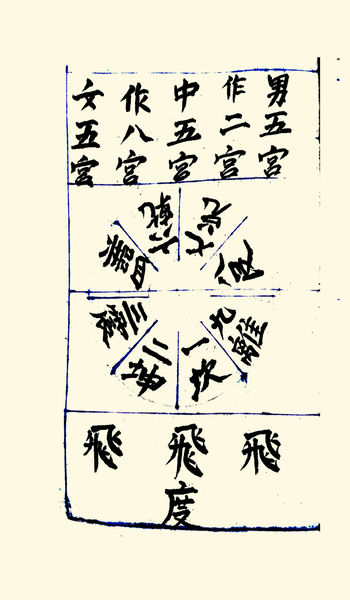 男五宫
作二宫
中五宫
作八宫
女五宫
一坎
二坤
三震
四巽
六乾
七兑
八艮
九離
飛飛飛
度